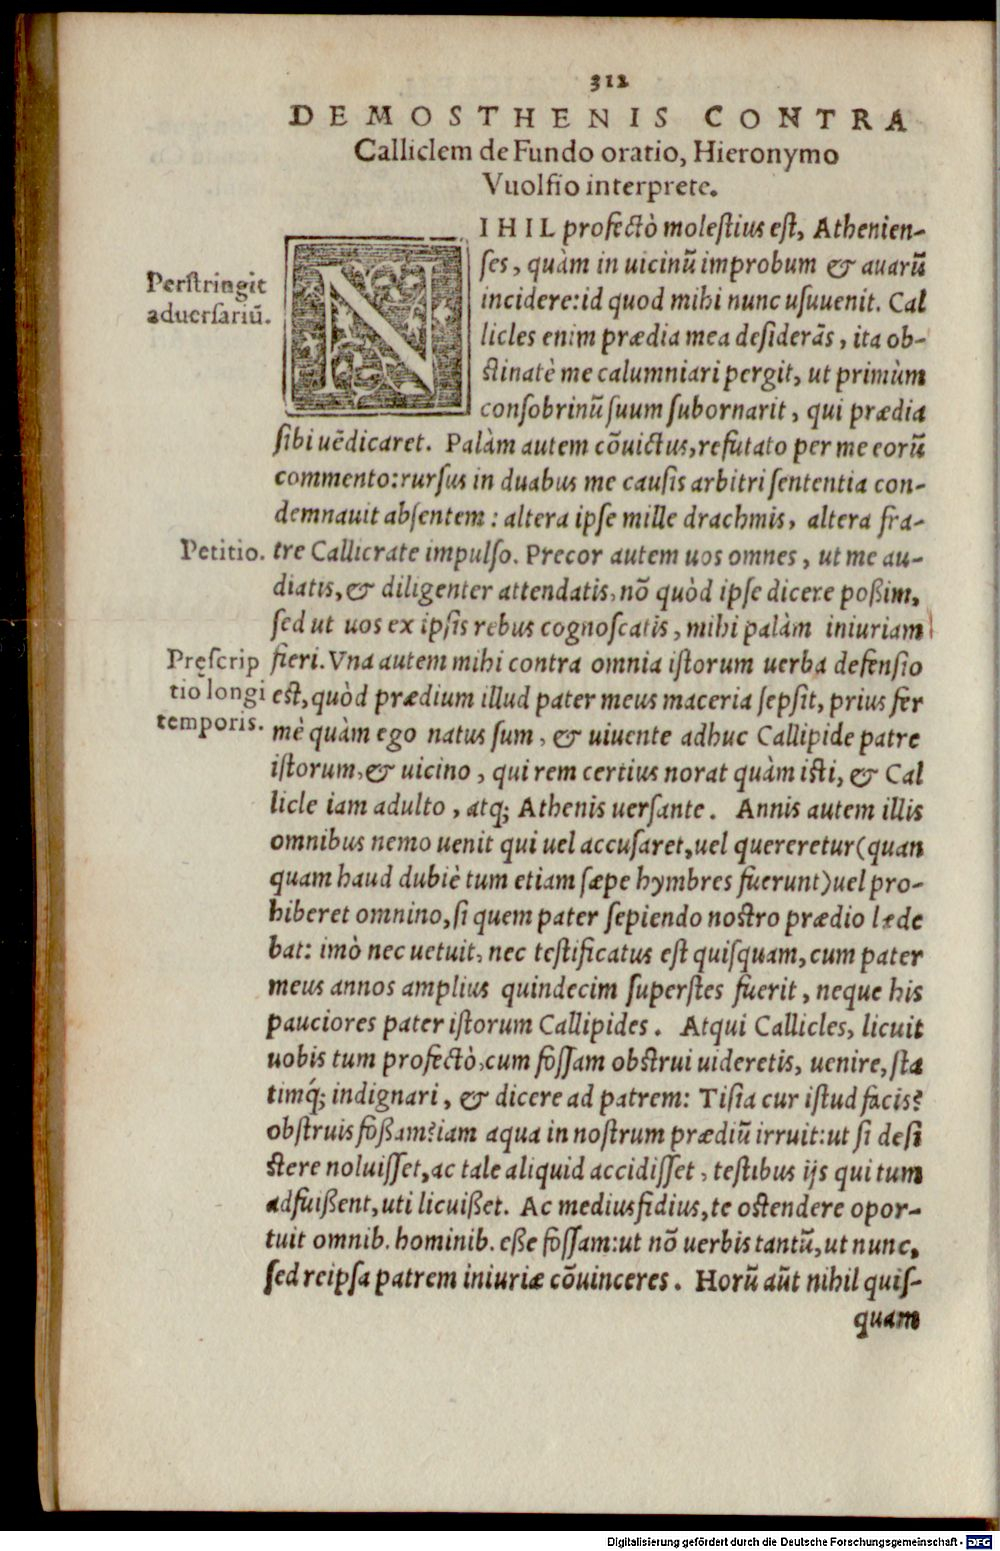 312
DEMOSTHENIS CONTRA
Calliclem de Fundo oratio, Hieronymo
Vuolfio interprete.
Perstringit
aduersariũ.
NIHIL profectò molestius est, Athenien-
ses, quàm in uicinũ improbum & auarũ
incidere: id quod mihi nunc usuuenit. Cal
licles enim prædia mea desiderãs, ita ob-
stinatè me calumniari pergit, ut primùm
consobrinũ suum subornarit, qui prædia
sibi uẽdicaret. Palàm autem cõuictus, refutato per me eorũ
commento: rursus in duabus me causis arbitri sententia con-
demnauit absentem: altera ipse mille drachmis, altera fra-
Petitio.
tre Callicrate impulso. Precor autem uos omnes, ut me au-
diatis, & diligenter attendatis, nõ quòd ipse dicere poßim,
sed ut uos ex ipsis rebus cognoscatis, mihi palàm iniuriam
Pręscrip
tio longi
temporis.
fieri. Vna autem mihi contra omnia istorum uerba defensio
est, quòd prædium illud pater meus maceria sepsit, prius fer
mè quàm ego natus sum, & uiuente adhuc Callipide patre
istorum, & uicino, qui rem certius norat quàm isti, & Cal
licle iam adulto, atq; Athenis uersante. Annis autem illis
omnibus nemo uenit qui uel accusaret, uel quereretur (quan
quam haud dubiè tum etiam sæpe hymbres fuerunt) uel pro-
hiberet omnino, si quem pater sepiendo nostro prædio læde
bat: imò nec uetuit, nec testificatus est quisquam, cum pater
meus annos amplius quindecim superstes fuerit, neque his
pauciores pater istorum Callipides. Atqui Callicles, licuit
uobis tum profectò, cum fossam obstrui uideretis, uenire, sta
timq́; indignari, & dicere ad patrem: Tisia cur istud facis?
obstruis foßam? iam aqua in nostrum prædiũ irruit: ut si desi
stere noluisset, ac tale aliquid accidisset, testibus ijs qui tum
adfuißent, uti licuißet. Ac mediusfidius, te ostendere opor-
tuit omnib. hominib. eße fossam: ut nõ uerbis tantũ, ut nunc,
sed reipsa patrem iniuriæ cõuinceres. Horũ aũt nihil quis-
quam
Digitalisierung gefördert durch die Deutsche Forschungsgemeinschaft - DFG